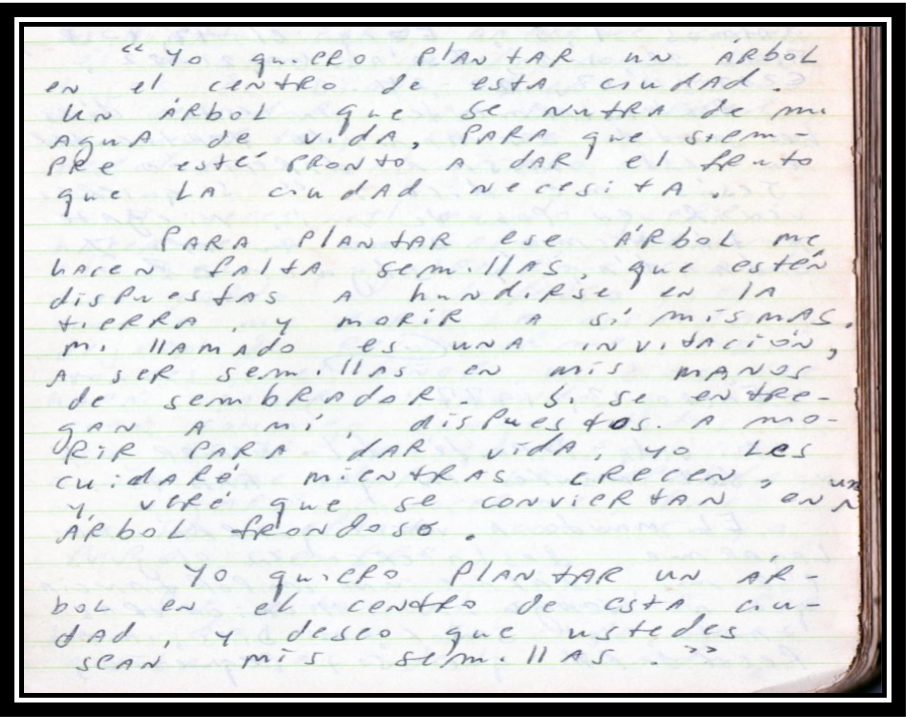 “Yo quiero plantar un árbol
en el centro de esta ciudad.
Un árbol que se nutra de mi
agua de vida, para que siem-
pre esté pronto a dar el fruto
que la ciudad necesita.
Para plantar ese árbol me
hacen falta semillas, que estén
dispuestas a hundirse en la
tierra, y morir a sí mismas.
Mi llamado es una invitación,
a ser semillas en mis manos
de sembrador. Si se entre-
gan a mí, dispuestos a mo-
rir para dar vida, yo les
cuidaré mientras crecen,
y veré que se conviertan en un
árbol frondoso.
Yo quiero plantar un ár-
bol en el centro de esta ciu-
dad, y deseo que ustedes
sean mis semillas.”